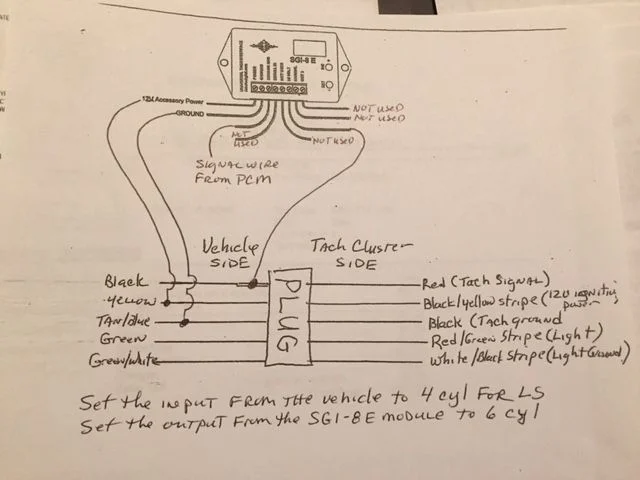 SGI-8 E
12V Accessory Power
GROUND
NOT USED
NOT USED
NOT USED
NOT USED
SIGNAL WIRE
FROM PCM
Vehicle
SIDE
Tach Cluster
SIDE
PLUG
Black
Yellow
TAN/Blue
Green
Green/white
Red (Tach Signal)
Black/yellow stripe (12V ignition
power)
Black (Tach ground
Red/Green Stripe (Light)
White/Black Stripe (Light Ground)
Set the input FROM THE vehicle to 4 cyl FOR LS
Set the output From the SGI-8E module to 6 cyl